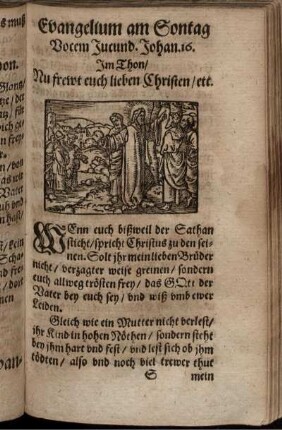 Evangelium am Sontag
Vocem Jucund. Johan. 16.
Im Thon/
Nu frewt euch lieben Christen/ ett.
WEnn euch bißweil der Sathan
sticht/ spricht Christus zu den sei-
nen. Solt jhr mein lieben Brüder
nicht/ verzagter weise greinen/ sondern
euch allweg trösten frey/ das GOtt der
Vater bey euch sey/ vnd wiß vmb ewer
Leiden.
Gleich wie ein Mutter nicht verlest/
jhr Kind in hohen Nöthen/ sondern steht
bey jhm hart vnd fest/ vnd lest sich ob jhm
tödten/ also vnd noch viel trewer thut
S mein